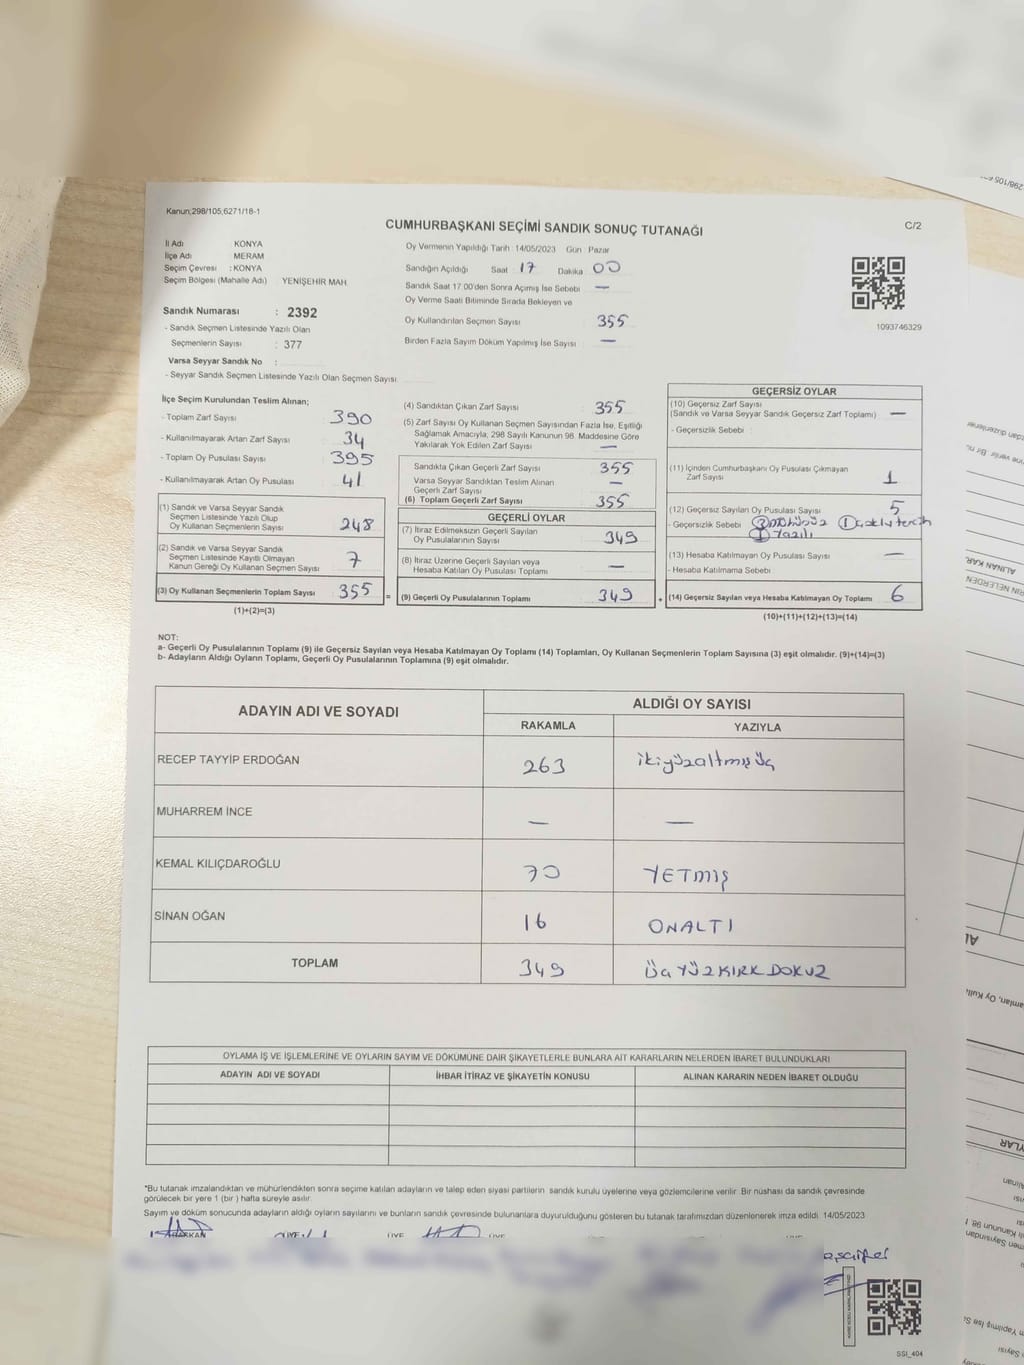 Kanun;298/105;6271/18-1
CUMHURBAŞKANI SEÇİMİ SANDIK SONUÇ TUTANAĞI
C/2
İl Adı KONYA
İlçe Adı MERAM
Seçim Çevresi : KONYA
Seçim Bölgesi (Mahalle Adı) YENİŞEHİR MAH.
Oy Vermenin Yapıldığı Tarih :14/05/2023 Gün : Pazar
Sandığın Açıldığı Saat : 17 Dakika 00
Sandık Saat 17:00'den Sonra Açımış İse Sebebi —
Oy Verme Saati Bitiminde Sırada Bekleyen ve
Oy Kullandırılan Seçmen Sayısı 355
Birden Fazla Sayım Döküm Yapılmış İse Sayısı —
1093746329
Sandık Numarası : 2392
- Sandık Seçmen Listesinde Yazılı Olan
Seçmenlerin Sayısı : 377
Varsa Seyyar Sandık No :
- Seyyar Sandık Seçmen Listesinde Yazılı Olan Seçmen Sayısı:
İlçe Seçim Kurulundan Teslim Alınan;
- Toplam Zarf Sayısı 390
- Kullanılmayarak Artan Zarf Sayısı 34
- Toplam Oy Pusulası Sayısı 395
- Kullanılmayarak Artan Oy Pusulası 41
(1) Sandık ve Varsa Seyyar Sandık
Seçmen Listesinde Yazılı Olup
Oy Kullanan Seçmenlerin Sayısı 248
(2) Sandık ve Varsa Seyyar Sandık
Seçmen Listesinde Kayıtlı Olmayan
Kanun Gereği Oy Kullanan Seçmen Sayısı 7
(3) Oy Kullanan Seçmenlerin Toplam Sayısı 355 =
(1)+(2)=(3)
(4) Sandıktan Çıkan Zarf Sayısı 355
(5) Zarf Sayısı Oy Kullanan Seçmen Sayısından Fazla İse, Eşitliği
Sağlamak Amacıyla; 298 Sayılı Kanunun 98. Maddesine Göre
Yakılarak Yok Edilen Zarf Sayısı —
Sandıkta Çıkan Geçerli Zarf Sayısı 355
Varsa Seyyar Sandıktan Teslim Alınan
Geçerli Zarf Sayısı —
(6) Toplam Geçerli Zarf Sayısı 355
GEÇERLİ OYLAR
(7) İtiraz Edilmeksizin Geçerli Sayılan
Oy Pusulalarının Sayısı 349
(8) İtiraz Üzerine Geçerli Sayılan veya
Hesaba Katılan Oy Pusulası Toplamı —
(9) Geçerli Oy Pusulalarının Toplamı 349 +
GEÇERSİZ OYLAR
(10) Geçersiz Zarf Sayısı
(Sandık ve Varsa Seyyar Sandık Geçersiz Zarf Toplamı) —
- Geçersizlik Sebebi :
(11) İçinden Cumhurbaşkanı Oy Pusulası Çıkmayan
Zarf Sayısı 1
(12) Geçersiz Sayılan Oy Pusulası Sayısı 5
Geçersizlik Sebebi
① Yazılı
(13) Hesaba Katılmayan Oy Pusulası Sayısı —
- Hesaba Katılmama Sebebi
(14) Geçersiz Sayılan veya Hesaba Katılmayan Oy Toplamı 6
(10)+(11)+(12)+(13)=(14)
NOT:
a- Geçerli Oy Pusulalarının Toplamı (9) ile Geçersiz Sayılan veya Hesaba Katılmayan Oy Toplamı (14) Toplamları, Oy Kullanan Seçmenlerin Toplam Sayısına (3) eşit olmalıdır. (9)+(14)=(3)
b- Adayların Aldığı Oyların Toplamı, Geçerli Oy Pusulalarının Toplamına (9) eşit olmalıdır.
ADAYIN ADI VE SOYADI
ALDIĞI OY SAYISI
RAKAMLA YAZIYLA
RECEP TAYYİP ERDOĞAN 263 ikiyüzaltmışüç
MUHARREM İNCE — —
KEMAL KILIÇDAROĞLU 70 YETMİŞ
SİNAN OĞAN 16 ONALTI
TOPLAM 349 ÜÇYÜZKIRKDOKUZ
OYLAMA İŞ VE İŞLEMLERİNE VE OYLARIN SAYIM VE DÖKÜMÜNE DAİR ŞİKAYETLERLE BUNLARA AİT KARARLARIN NELERDEN İBARET BULUNDUKLARI
ADAYIN ADI VE SOYADI İHBAR İTİRAZ VE ŞİKAYETİN KONUSU ALINAN KARARIN NEDEN İBARET OLDUĞU
*Bu tutanak imzalandıktan ve mühürlendikten sonra seçime katılan adayların ve talep eden siyasi partilerin sandık kurulu üyelerine veya gözlemcilerine verilir. Bir nüshası da sandık çevresinde
görülecek bir yere 1 (bir ) hafta süreyle asılır.
Sayım ve döküm sonucunda adayların aldığı oyların sayılarını ve bunların sandık çevresinde bulunanlara duyurulduğunu gösteren bu tutanak tarafımızdan düzenlenerek imza edildi. 14/05/2023
BAŞKAN ÜYE ÜYE
SSI_404